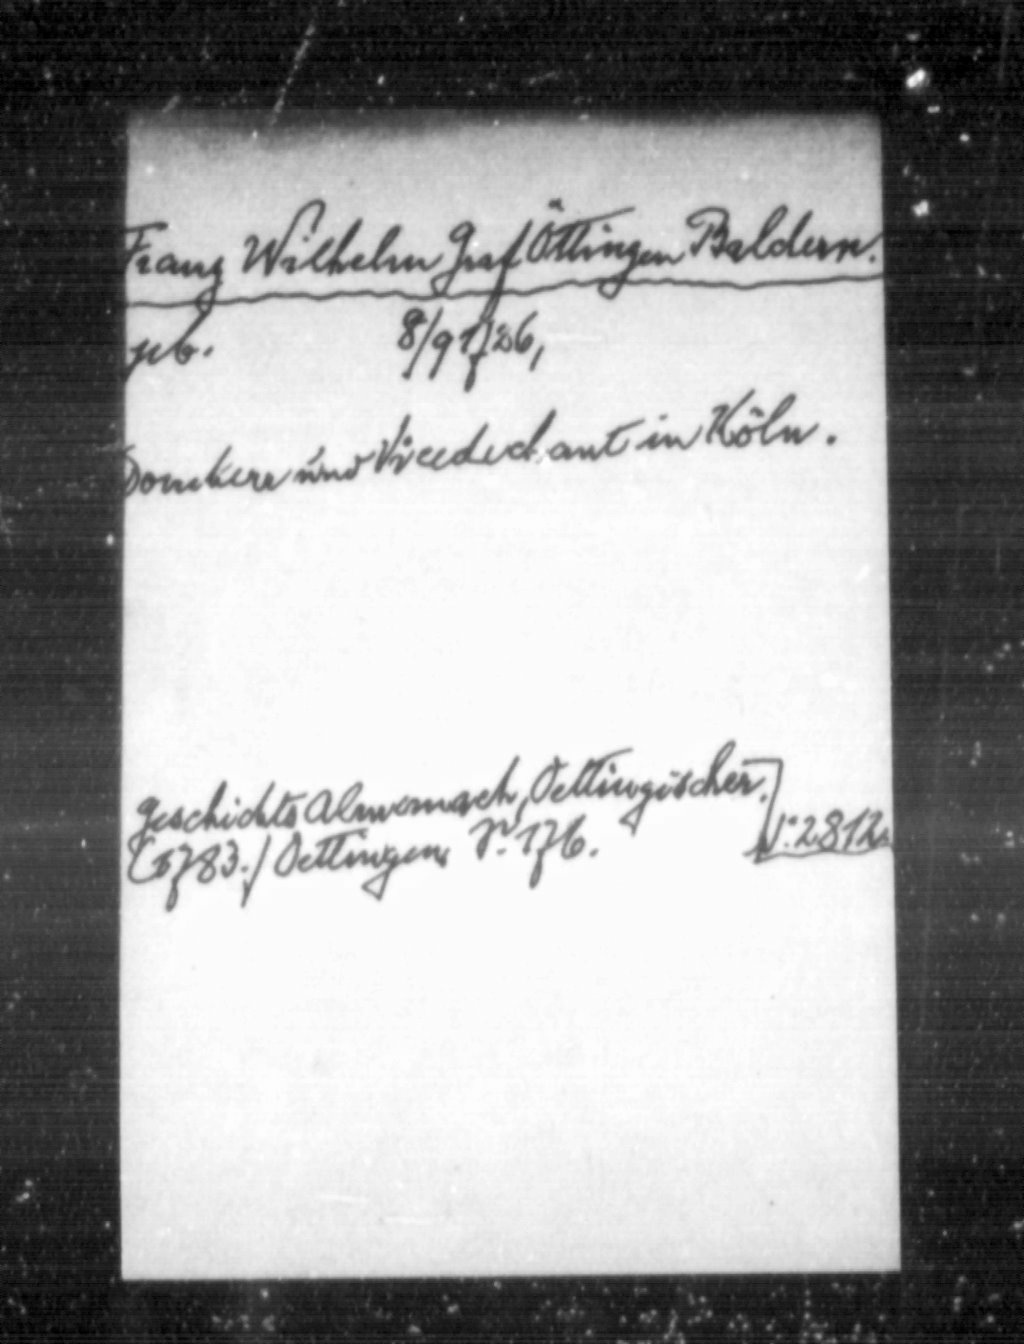 Franz Wilhelm Graf Öttingen Baldern.
geb. 8/9 1726,
Domherr und Vicedechant in Köln.
Geschichts Almemach, Oettingischer.
(1783.) Oettingen, S. 176. N. 2812.